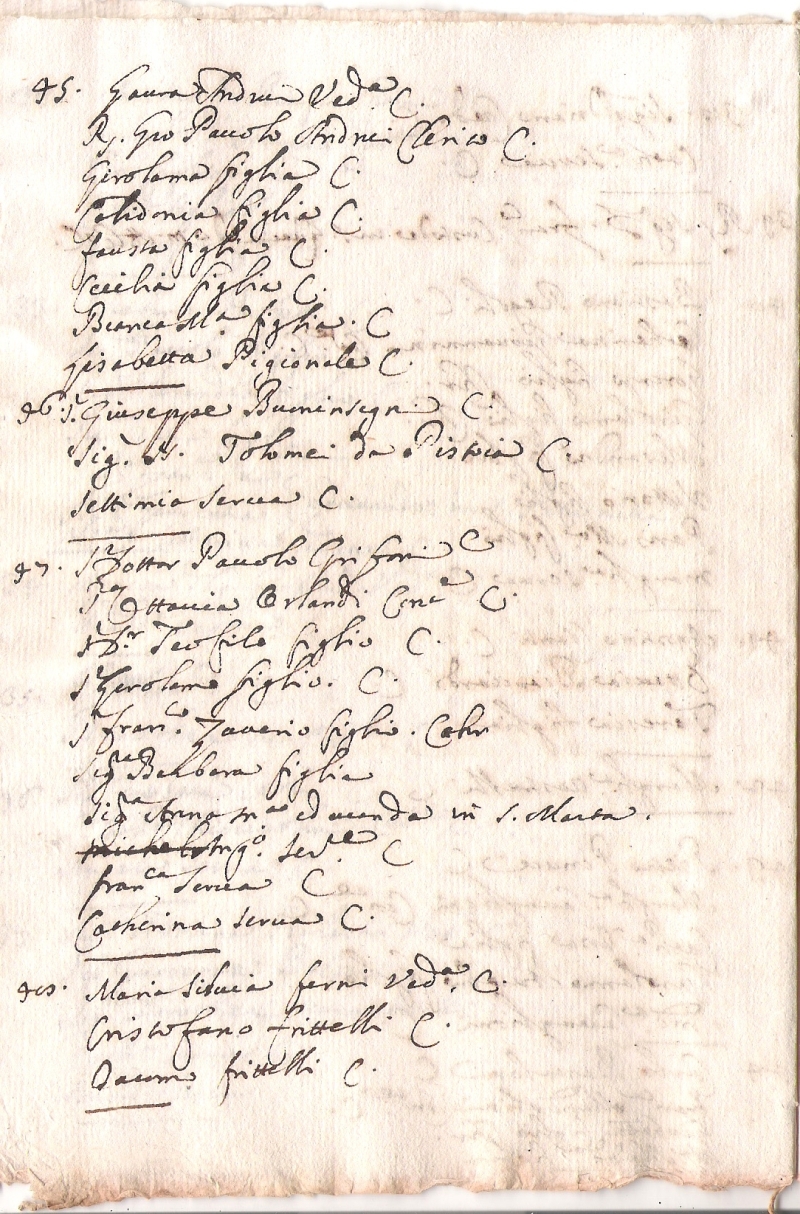 45. Laura Andrei Ved.a C.
R. Gio Pauolo Andrei Clerico C.
Gerolama figlia C.
Calidonia figlia C.
fausta figlia C.
Cecilia figlia C.
Bianca M.a figlia. C
Lisabetta Pigionale C.
46. S.r Giuseppe Buoninsegni C.
Sig.r Tolomei da Pistoia C.
Settimia serua C.
47. S.r Dottor Pauolo Grifoni C
S.ra Ottauia Orlandi Con.te C.
S.r D.r Teofilo figlio C.
S.r Gerolamo figlio. C.
S.r Fran.co Zauerio figlio.
Sig.ra Barbera figlia
Sig.ra Anna M.a educanda in S. Marta.
Ser.e C
fran.ca Serua C
Catherina serua C.
48. Maria Siluia ferri Ved.a C.
Cristofano frittelli C.
Giacomo frittelli C.